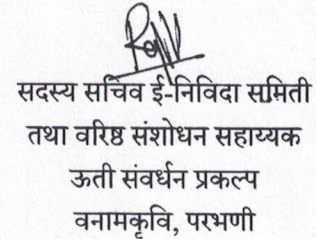 सदस्य सचिव ई-निविदा समिती
तथा वरिष्ठ संशोधन सहाय्यक
ऊती संवर्धन प्रकल्प
वनामकृवि, परभणी